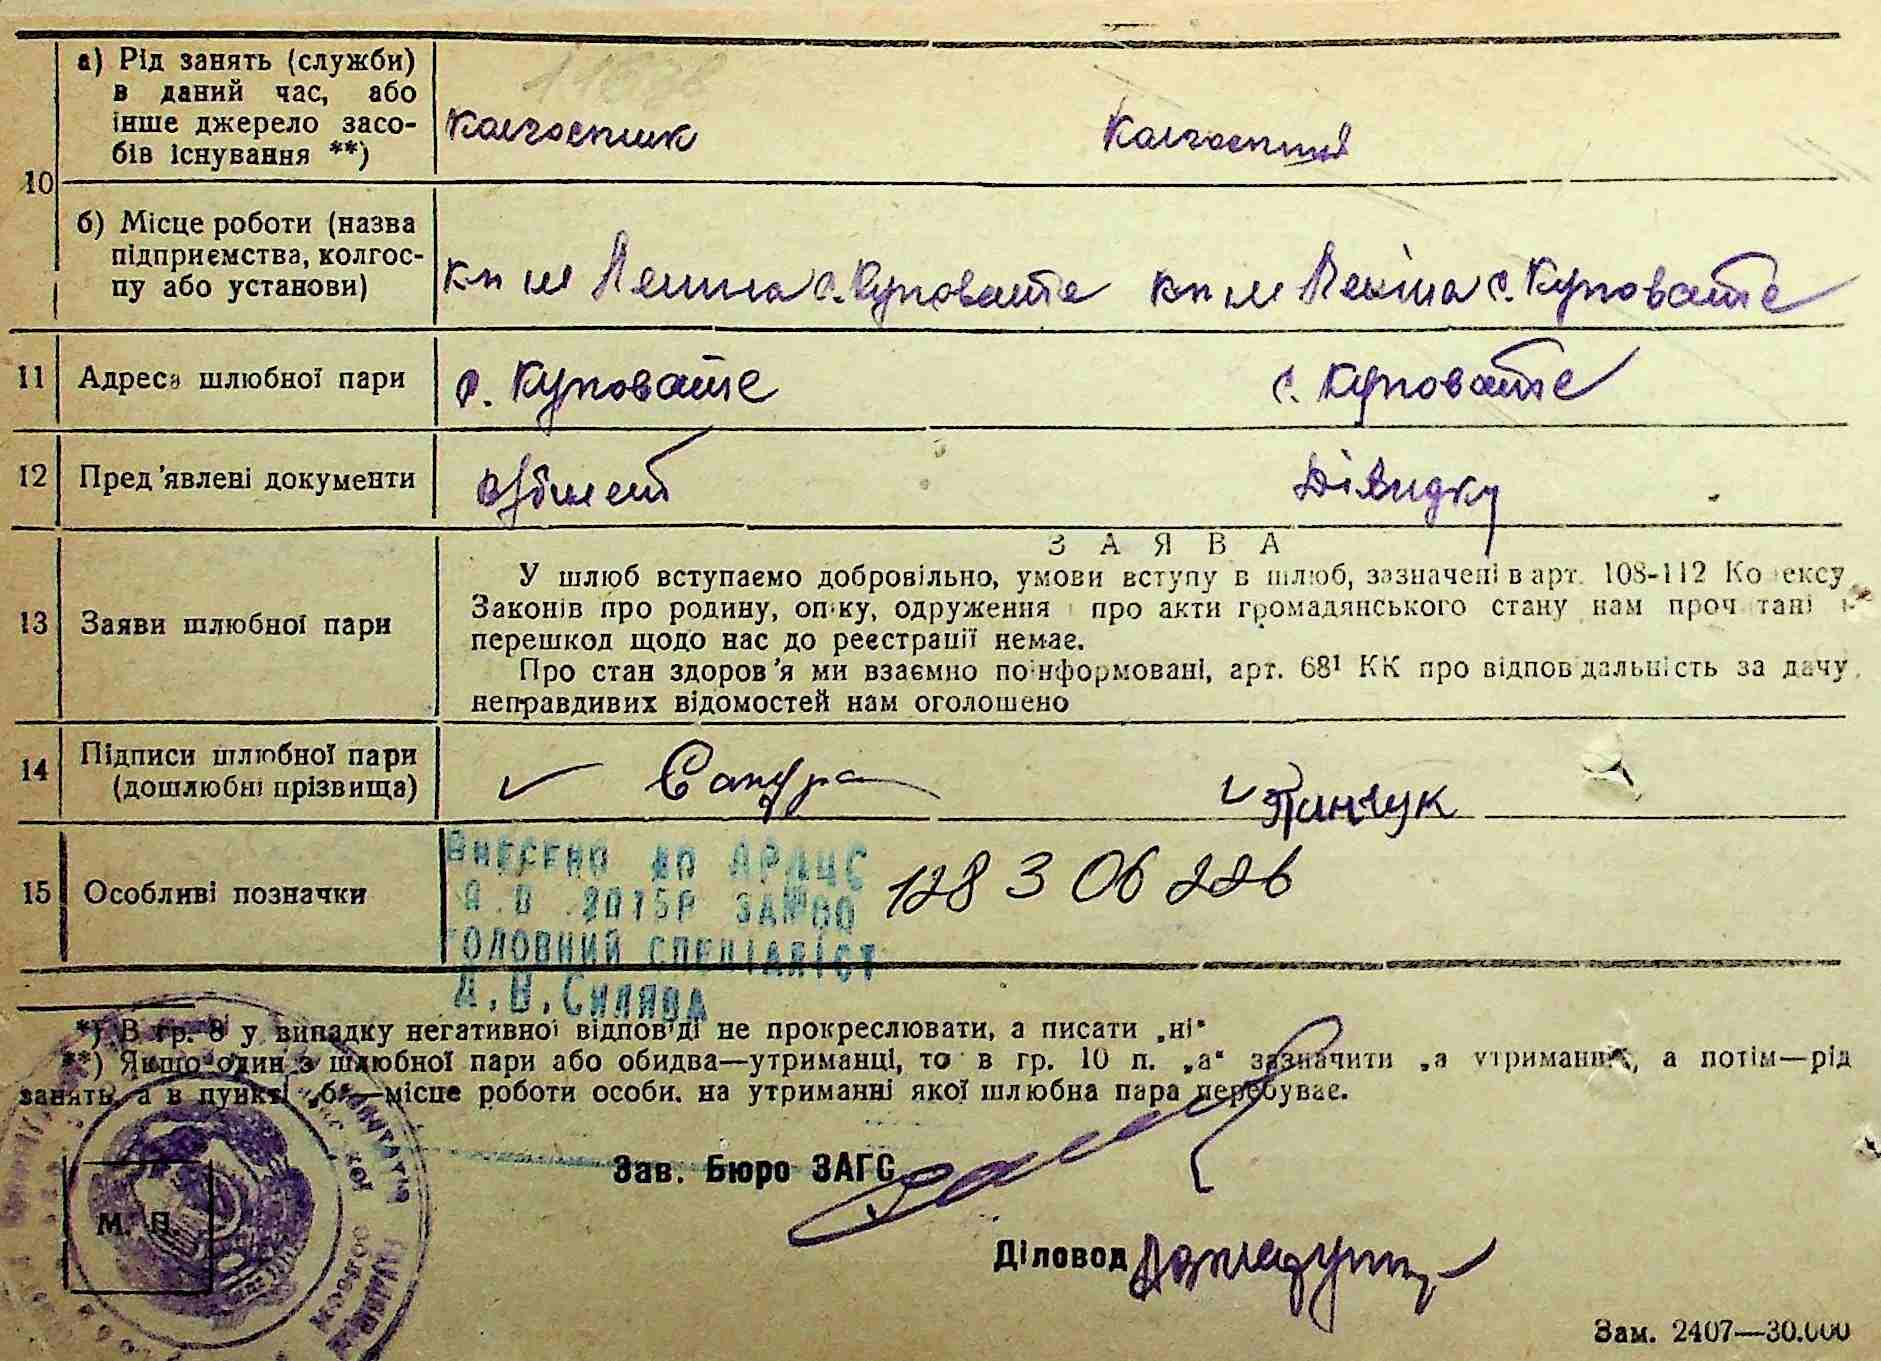 а) Рід занять (служби)
в даний час, або
інше джерело засо-
бів існування **)
Колгоспник
Колгоспниця
10
б) Місце роботи (назва
підприємства, колгос-
пу або установи)
кп ім Леніна с. Куповате
кп ім Леніна с. Куповате
11 Адреса шлюбної пари
с. Куповате
с. Куповате
12 Пред'явлені документи
в/білет
Довідку
13 Заяви шлюбної пари
ЗАЯВА
У шлюб вступаємо добровільно, умови вступу в шлюб, зазначені в арт. 108-112 Кодексу
Законів про родину, опіку, одруження і про акти громадянського стану нам прочитані і
перешкод щодо нас до реєстрації немає.
Про стан здоров'я ми взаємно поінформовані, арт. 68¹ КК про відповідальність за дачу
неправдивих відомостей нам оголошено
14 Підписи шлюбної пари
(дошлюбні прізвища)
Сапура
Пинчук
15 Особливі позначки
ВНЕСЕНО ДО ДРАЦС
2015Р ЗА№00
ГОЛОВНИЙ СПЕЦІАЛІСТ
Д.В.СИЛЯВА
128 3 06 226
*) В гр. 8 у випадку негативної відповіді не прокреслювати, а писати „ні"
**) Якщо один з шлюбної пари або обидва—утриманці, то в гр. 10 п. „а" зазначити „а утриманні", а потім—рід
занять, а в пункті „б"—місце роботи особи, на утриманні якої шлюбна пара перебуває.
Зав. Бюро ЗАГС
М. П.
Діловод
Зам. 2407—30.000